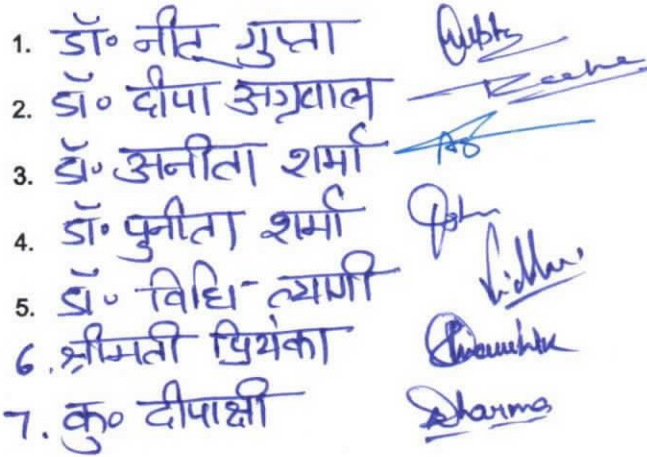 1. डॉ० नीतू गुप्ता Gupta
2. डॉ० दीपा अग्रवाल
3. डॉ० अनीता शर्मा
4. डॉ० पुनीता शर्मा
5. डॉ० विधि त्यागी Vidhi
6. श्रीमती प्रियंका
7. कु० दीपाक्षी Sharma